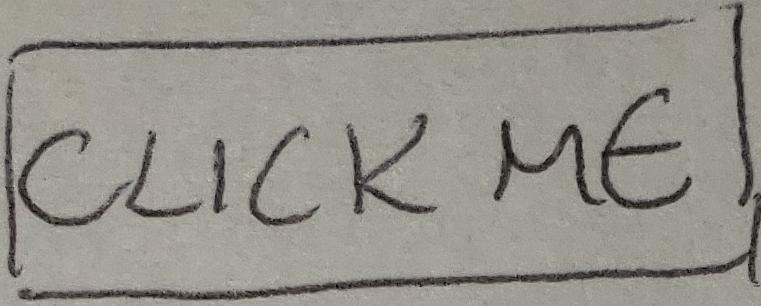 CLICK ME